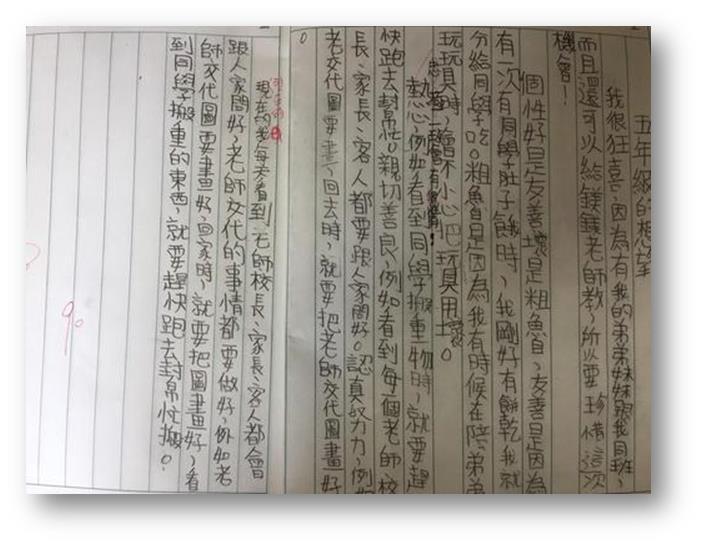 五年級的想望
我很狂喜,因為有我的弟弟妹妹跟我同班,
而且還可以給鎂鎂老師教,所以要珍惜這次
機會!
個性好是友善壞是粗魯,友善是因為
有一次有同學肚子餓時,我剛好有餅乾我就
分給同學吃。粗魯是因為我有時候在陪弟弟
玩玩具時,會不小心把玩具用壞。
熱心,例如看到同學搬重物時,就要趕
快跑去幫忙。親切善良,例如看到每個老師校
長、家長、客人都要跟人家問好。認真努力,例如
老交代圖要畫,回去時,就要把老師交代圖畫好
。
現在的我每天看到老師校長、家長、客人都會
跟人家問好,老師交代的事情都要做好,例如老
師交代圖要畫好,回家時,就要把圖畫好,看
到同學搬重的東西,就要趕快跑去幫忙搬。
90